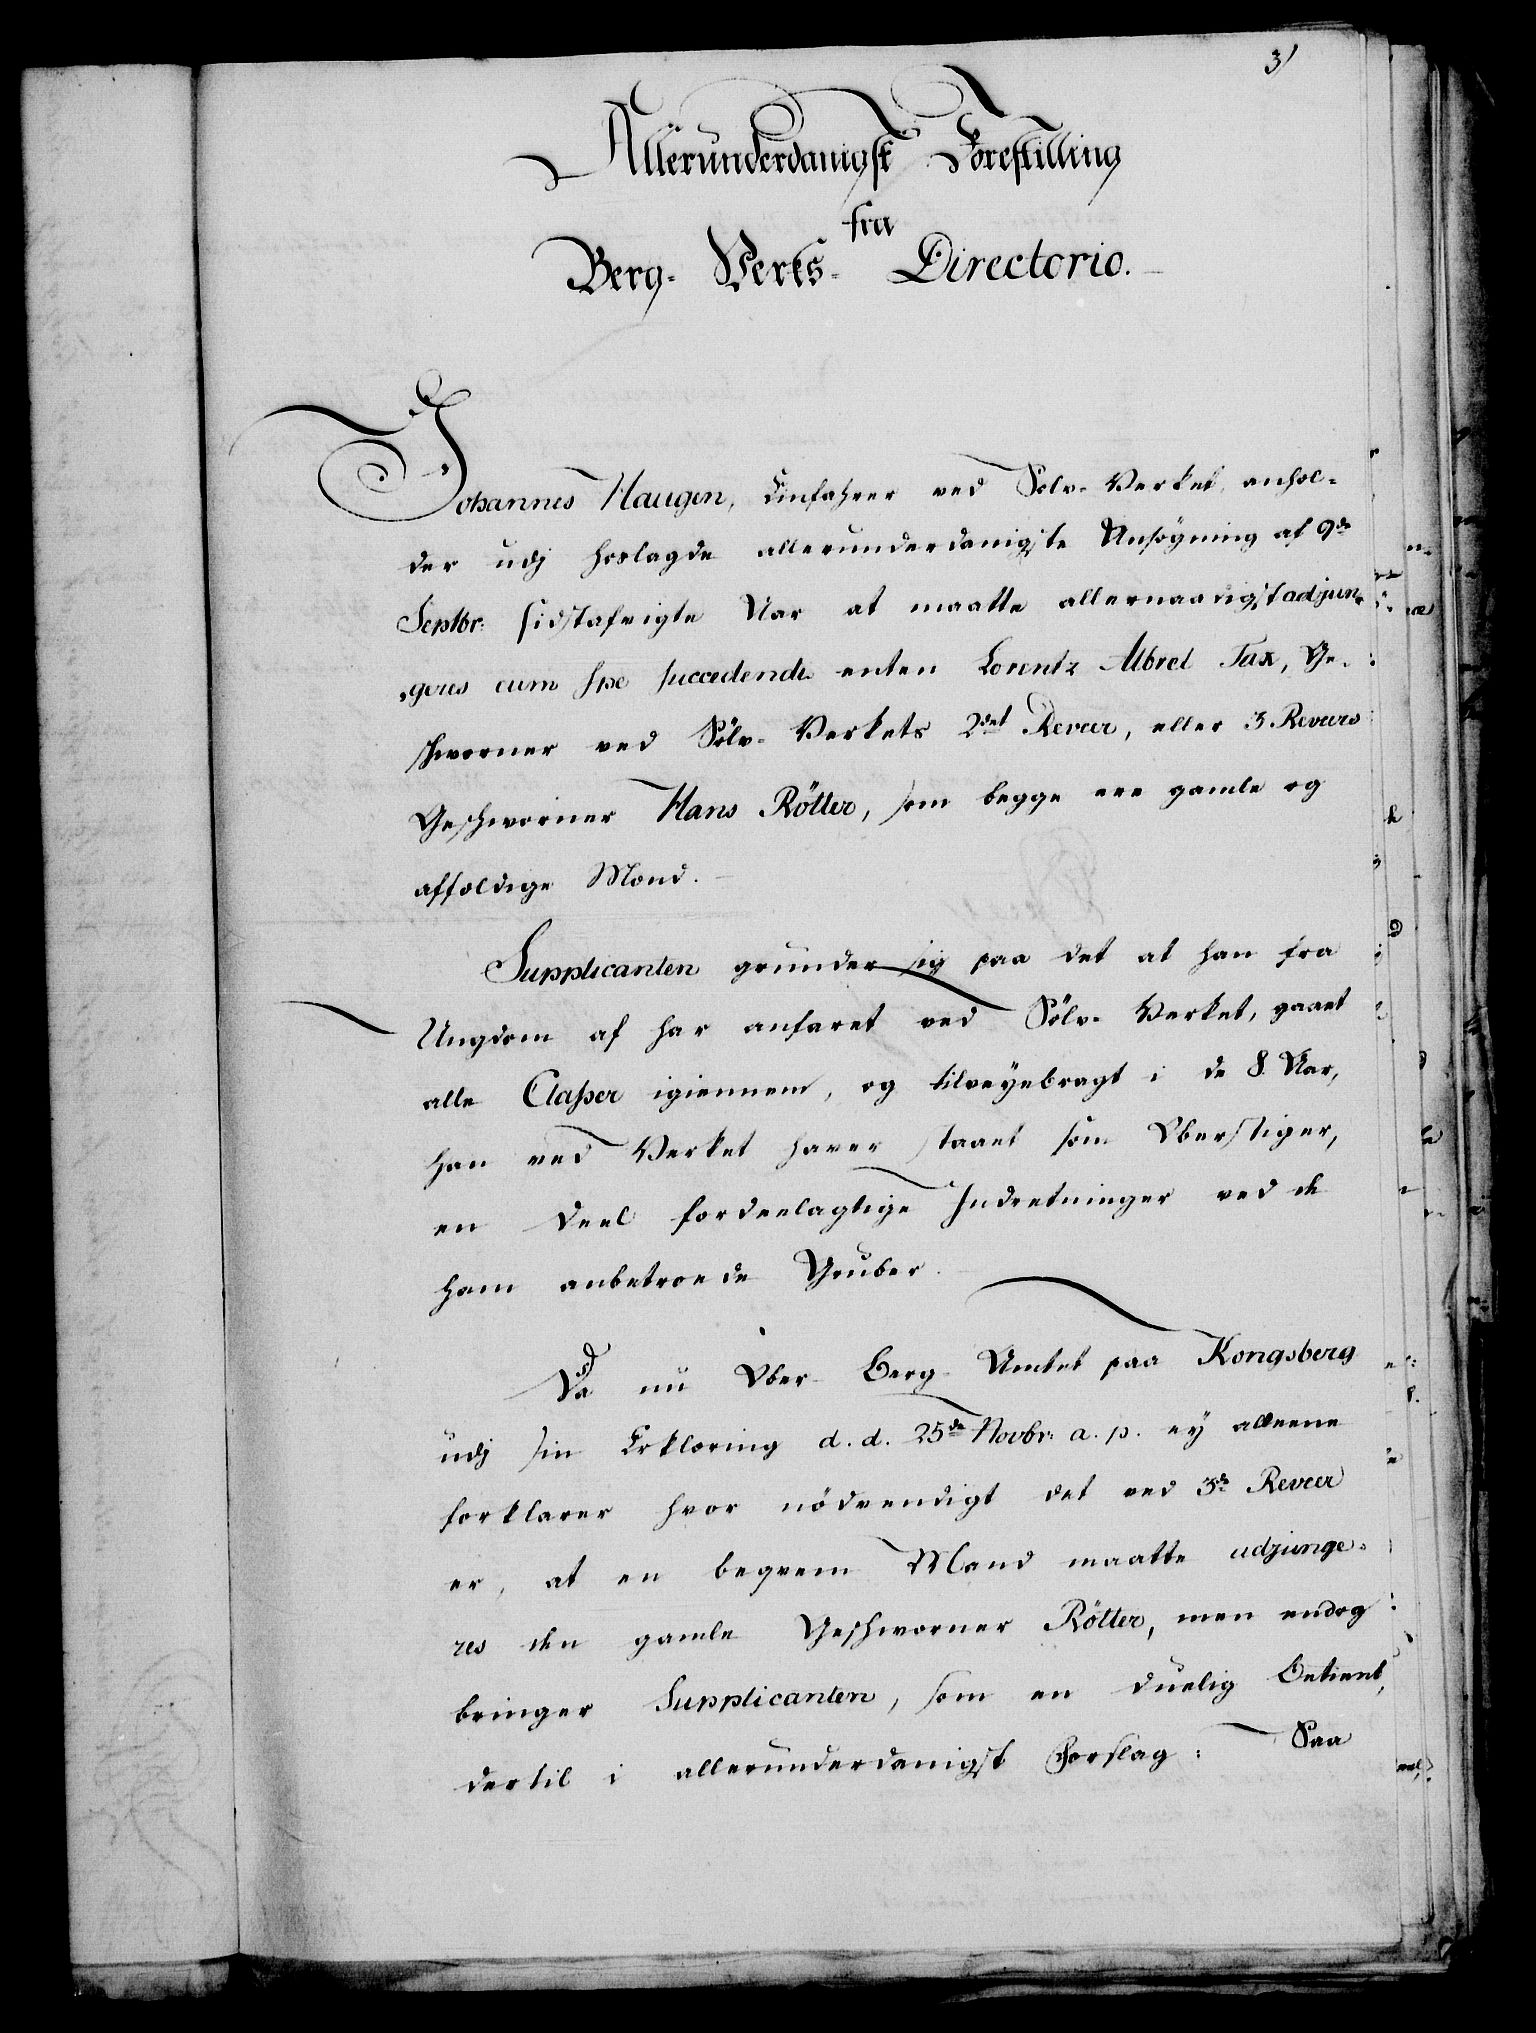 3)
Allerunderdanigst Forestilling
fra
Berg- Verks- Directorio.
Johannes Haugen, Einfahrer ved Sölv-Verket, anhol-
der udj hoslagde allerunderdanigste Ansögning af 9de
Septbr: sidstafvigte Aar at maatte allernaadigst adjun-
geres cum spe succedendi enten Lorentz Albret Tax, Ge-
schworner ved Sölv-Verkets 2det Reveer, eller 3. Reveers
Geschworner Hans Rötter, som begge ere gamle og
affældige Mænd.
Supplicanten grunder sig paa det at han fra
Ungdom af har anfaret ved Sölv-Verket, gaaet
alle Classer igiennem, og tilveyebragt i de 8 Aar,
han ved Verket haver staaet som Oberstiger,
en Deel fordeelagtige Indretninger ved de
ham anbetroede Gruber.
Da nu Ober-Berg-Amtet paa Kongsberg
udj sin Erklæring d. d. 25de Novbr: a. p. ey alleene
forklarer hvor nödvendigt det ved 3de Reveer
er, at en beqvem Mand maatte adjunge-
res den gamle Geschworner Rötter, men endog
bringer Supplicanten, som en duelig Betient,
dertil i allerunderdanigst Forslag: Saa